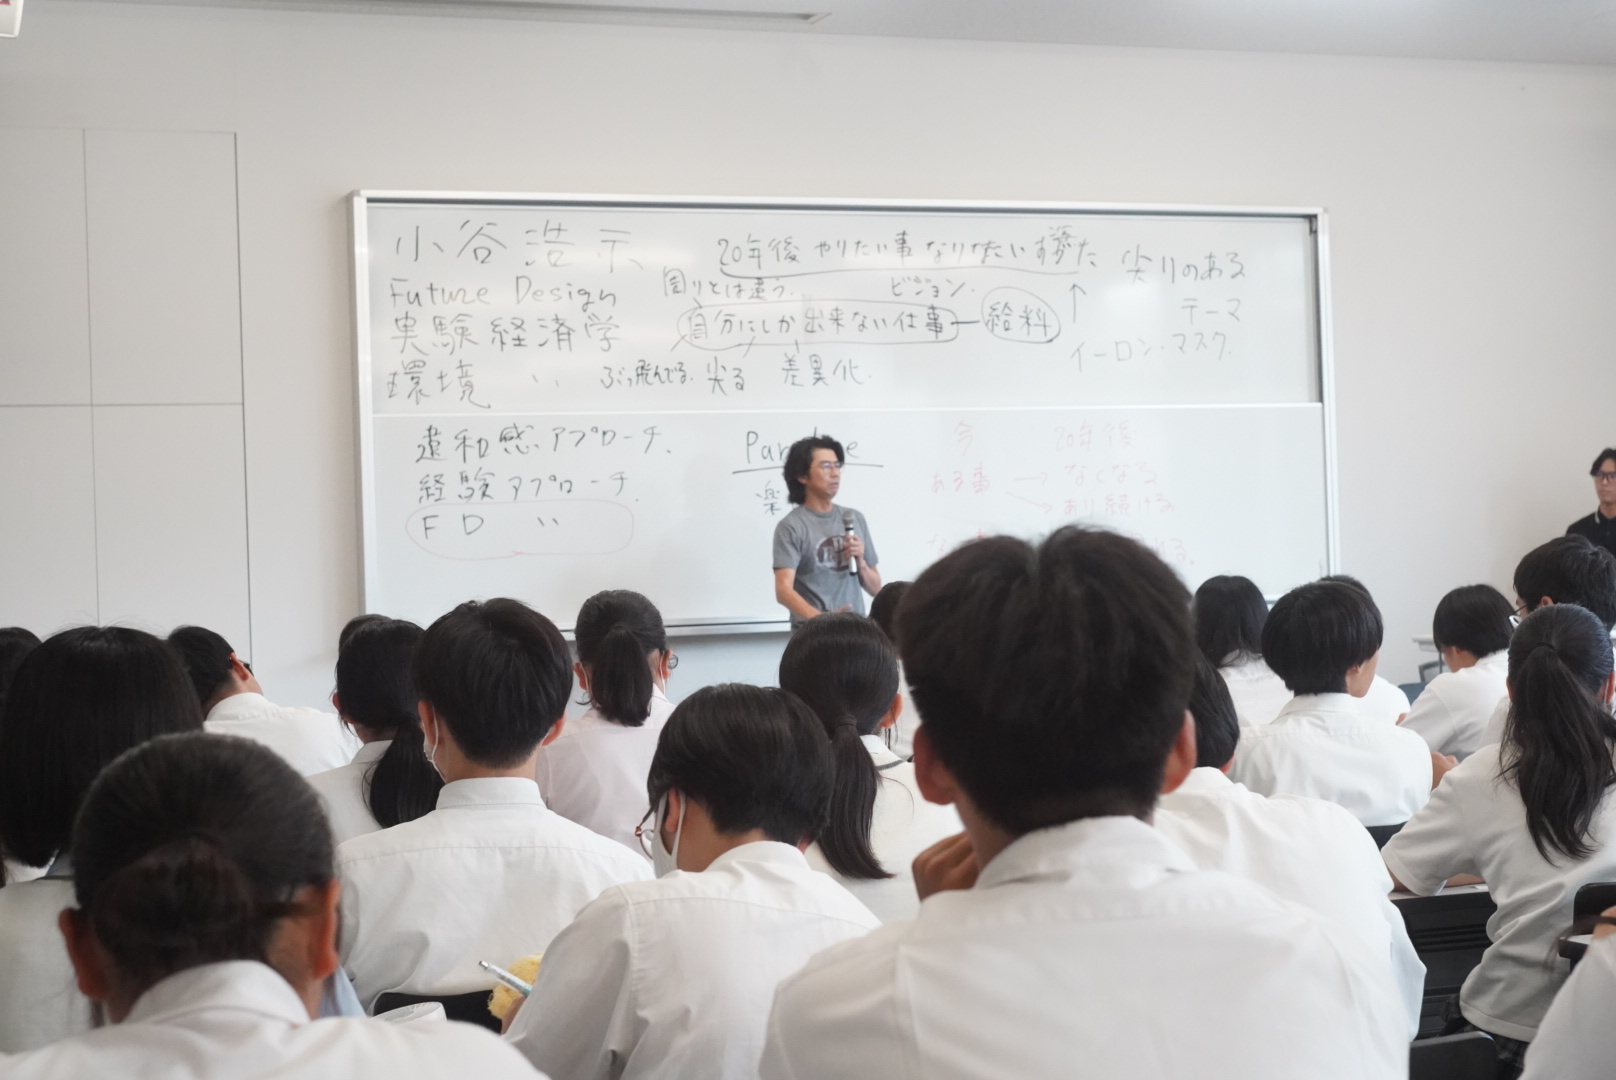 小谷浩示
Future Design
実験経済学
環境 〃
20年後 やりたい事 なりたい
周りとは違う.
ビジョン.
自分にしか出来ない仕事 ー 給料
ぶっ飛んでる. 尖る 差異化.
尖りのある
テーマ
↑
イーロン・マスク.
違和感アプローチ.
経験アプローチ.
FD 〃
Par e
楽
今 20年後
ある事 → なくなる
→ あり続ける
な れる.